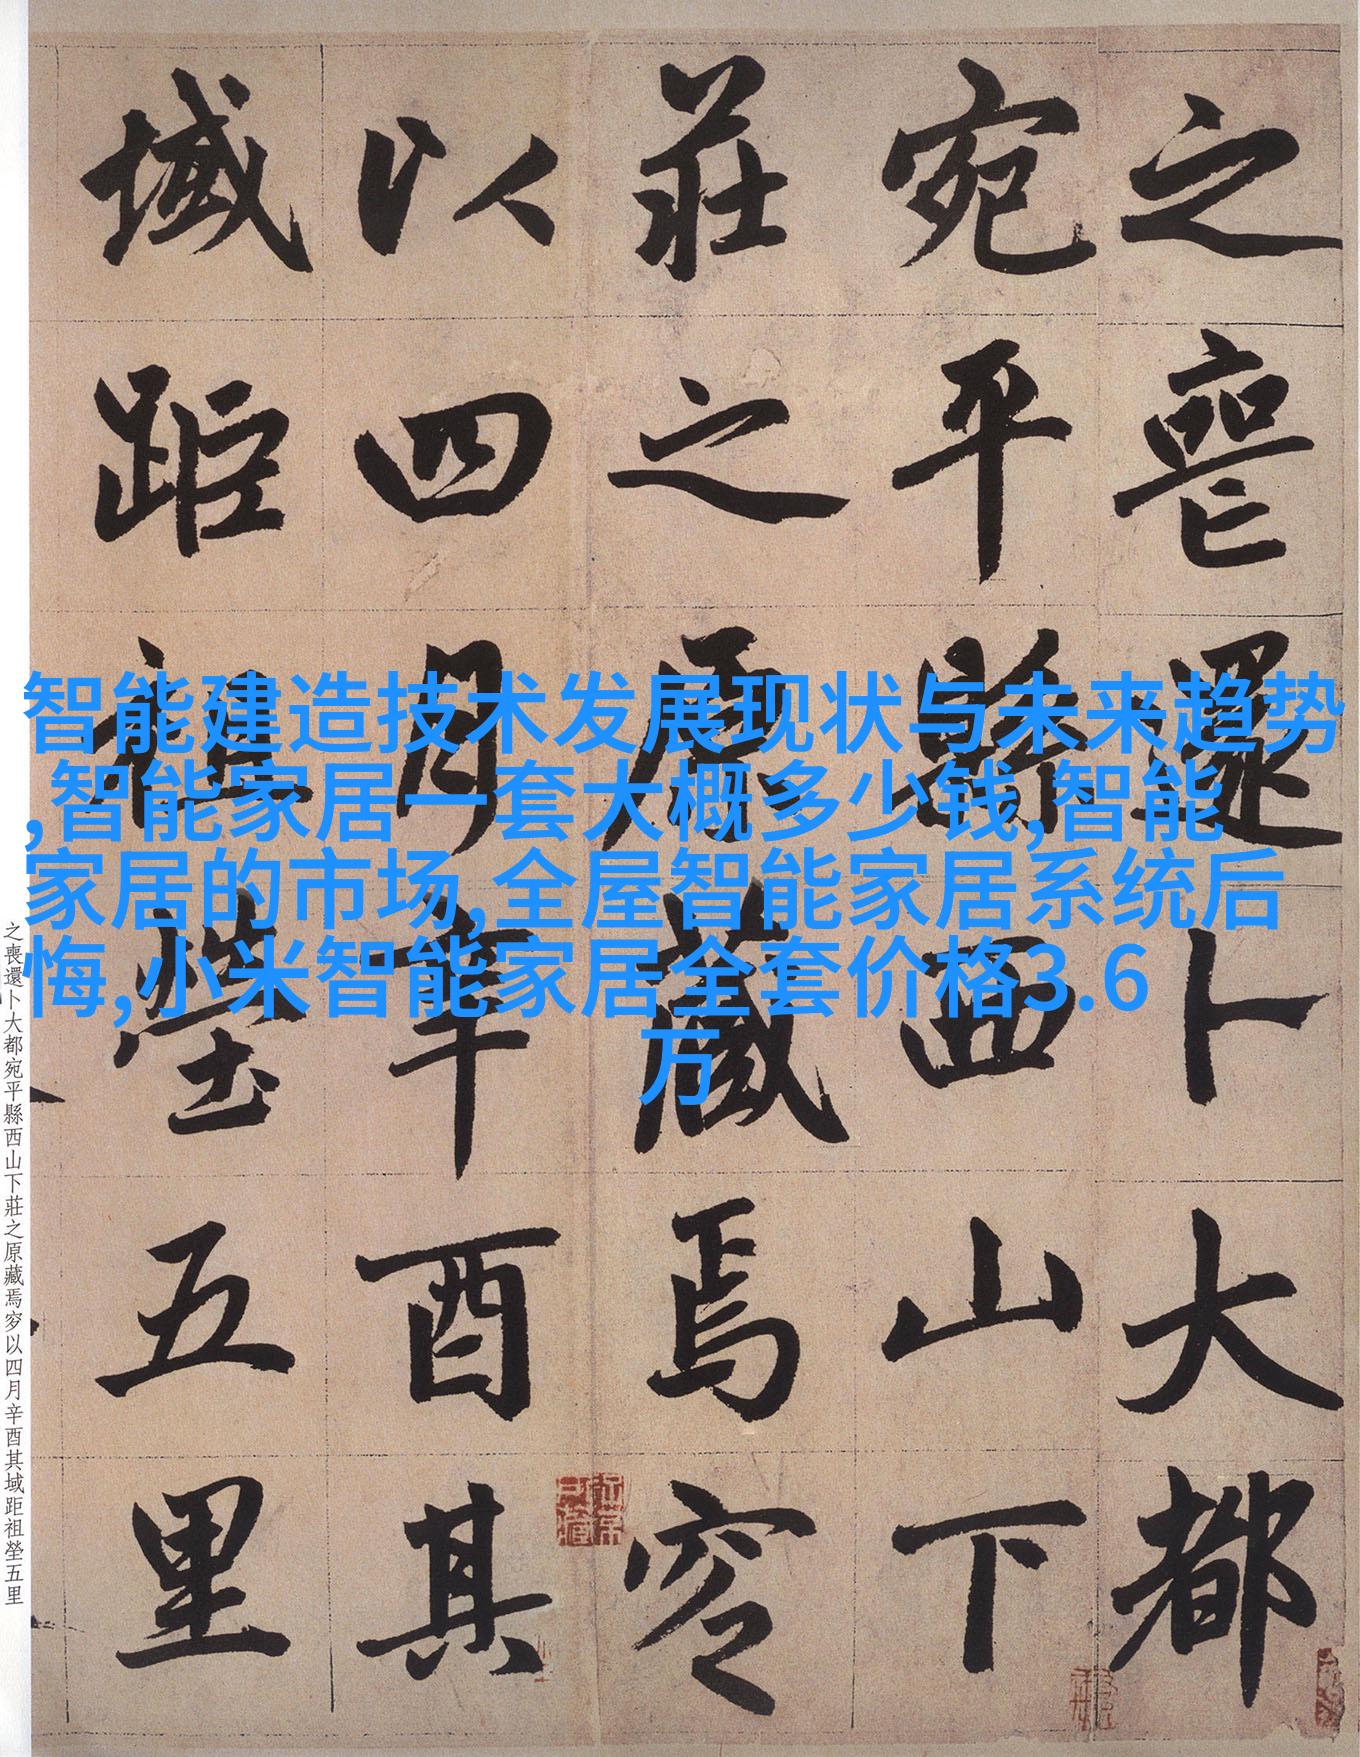 之喪還卜大都
宛平縣西山下
莊之原藏焉穸
以四月辛酉其
域距祖塋五里
智能建造技术发展现状与未来趋势
,智能家居一套大概多少钱,智能
家居的市场,全屋智能家居系统后
悔,小米智能家居全套价格3.6
万
之喪還卜大都宛平縣西山下莊之原藏焉穸以四月辛酉其域距祖塋五里